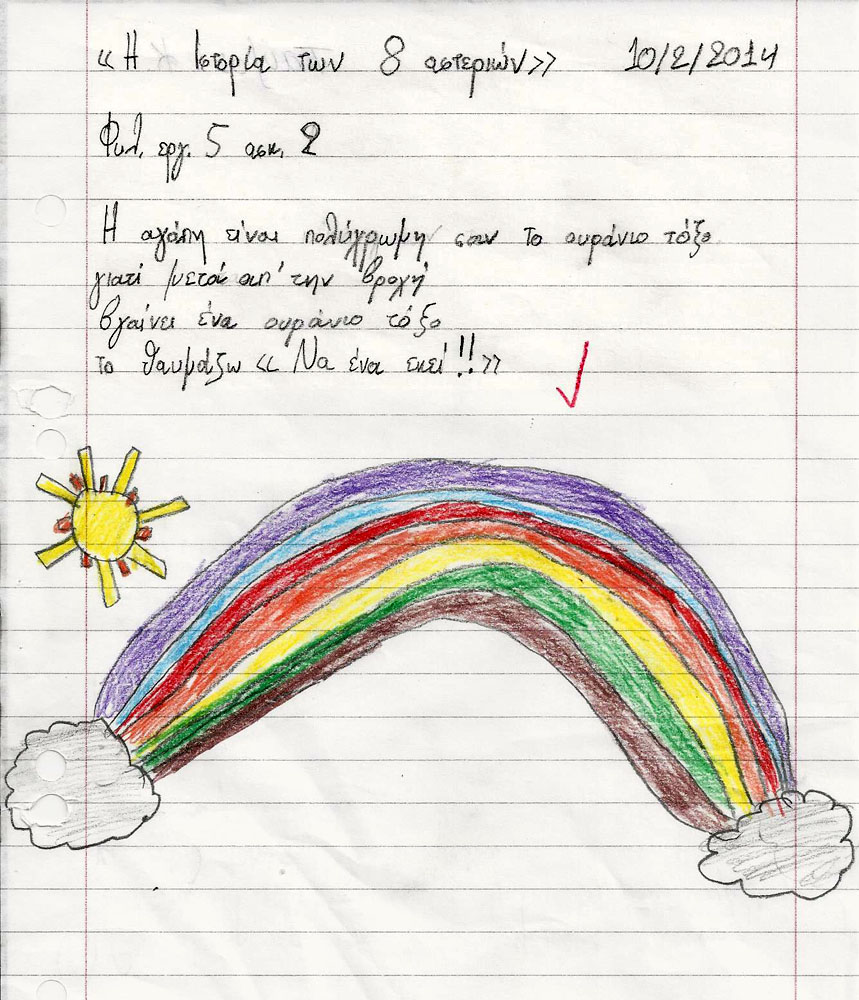 «Η Ιστορία των 8 αστεριών» 10/2/2014
Φυλ. εργ. 5 ασκ. 2
Η αγάπη είναι πολύχρωμη σαν το ουράνιο τόξο
γιατί μετά απ' την βροχή
βγαίνει ένα ουράνιο τόξο
το θαυμάζω « Να ένα εκεί!!»